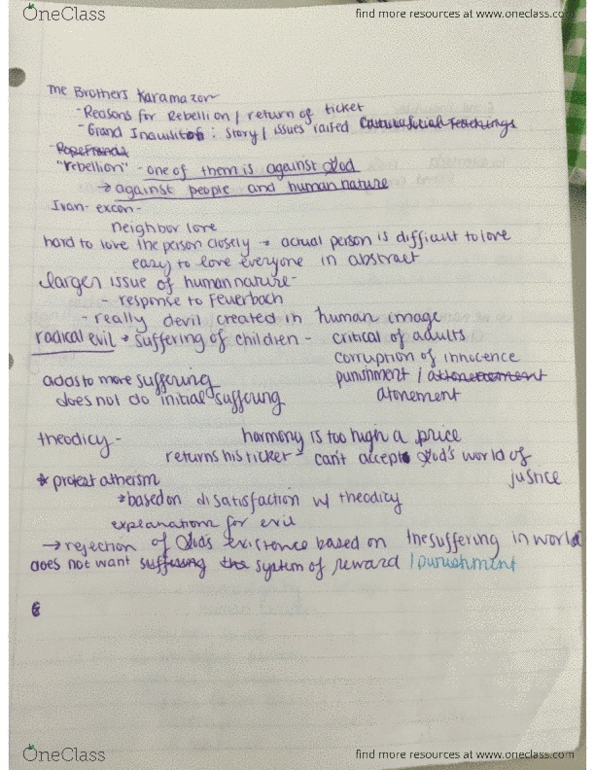 OneClass
find more resources at www.oneclass.com
The Brothers Karamazov
- Reasons for Rebellion / return of ticket
- Grand Inquisitor : story / issues raised
- Pope Francis
"rebellion" - one of them is against God
→ against people and human nature
Ivan - excon -
neighbor love
hard to love the person closely → actual person is difficult to love
easy to love everyone in abstract
larger issue of human nature -
- response to Feuerbach
- really devil created in human image
radical evil → suffering of children - critical of adults
corruption of innocence
adds to more suffering punishment /
does not do initial suffering atonement
theodicy - harmony is too high a price
returns his ticket - can't accept God's world of
justice
* protest atheism
→ based on disatisfaction w/ theodicy
explanations for evil
→ rejection of God's existence based on the suffering in world
does not want suffering the system of reward / punishment
OneClass
find more resources at www.oneclass.com